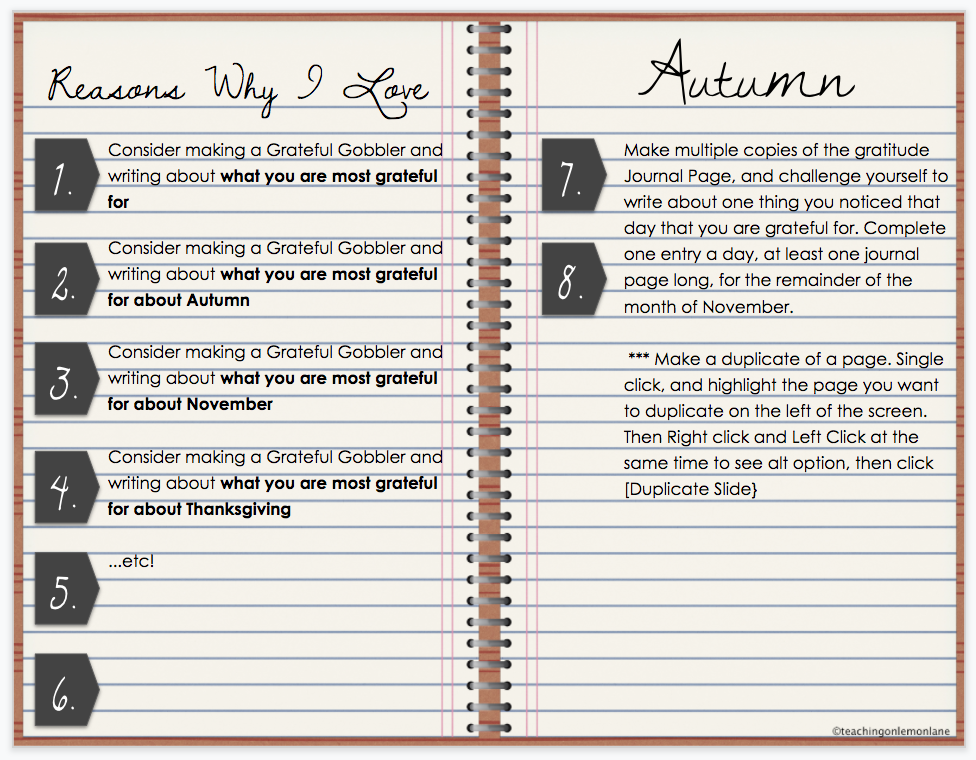 Reasons Why I Love
1.
Consider making a Grateful Gobbler and
writing about what you are most grateful
for
2.
Consider making a Grateful Gobbler and
writing about what you are most grateful
for about Autumn
3.
Consider making a Grateful Gobbler and
writing about what you are most grateful
for about November
4.
Consider making a Grateful Gobbler and
writing about what you are most grateful
for about Thanksgiving
5.
...etc!
6.
Autumn
7.
Make multiple copies of the gratitude
Journal Page, and challenge yourself to
write about one thing you noticed that
day that you are grateful for. Complete
8.
one entry a day, at least one journal
page long, for the remainder of the
month of November.
*** Make a duplicate of a page. Single
click, and highlight the page you want
to duplicate on the left of the screen.
Then Right click and Left Click at the
same time to see alt option, then click
[Duplicate Slide}
©teachingonlemonlane